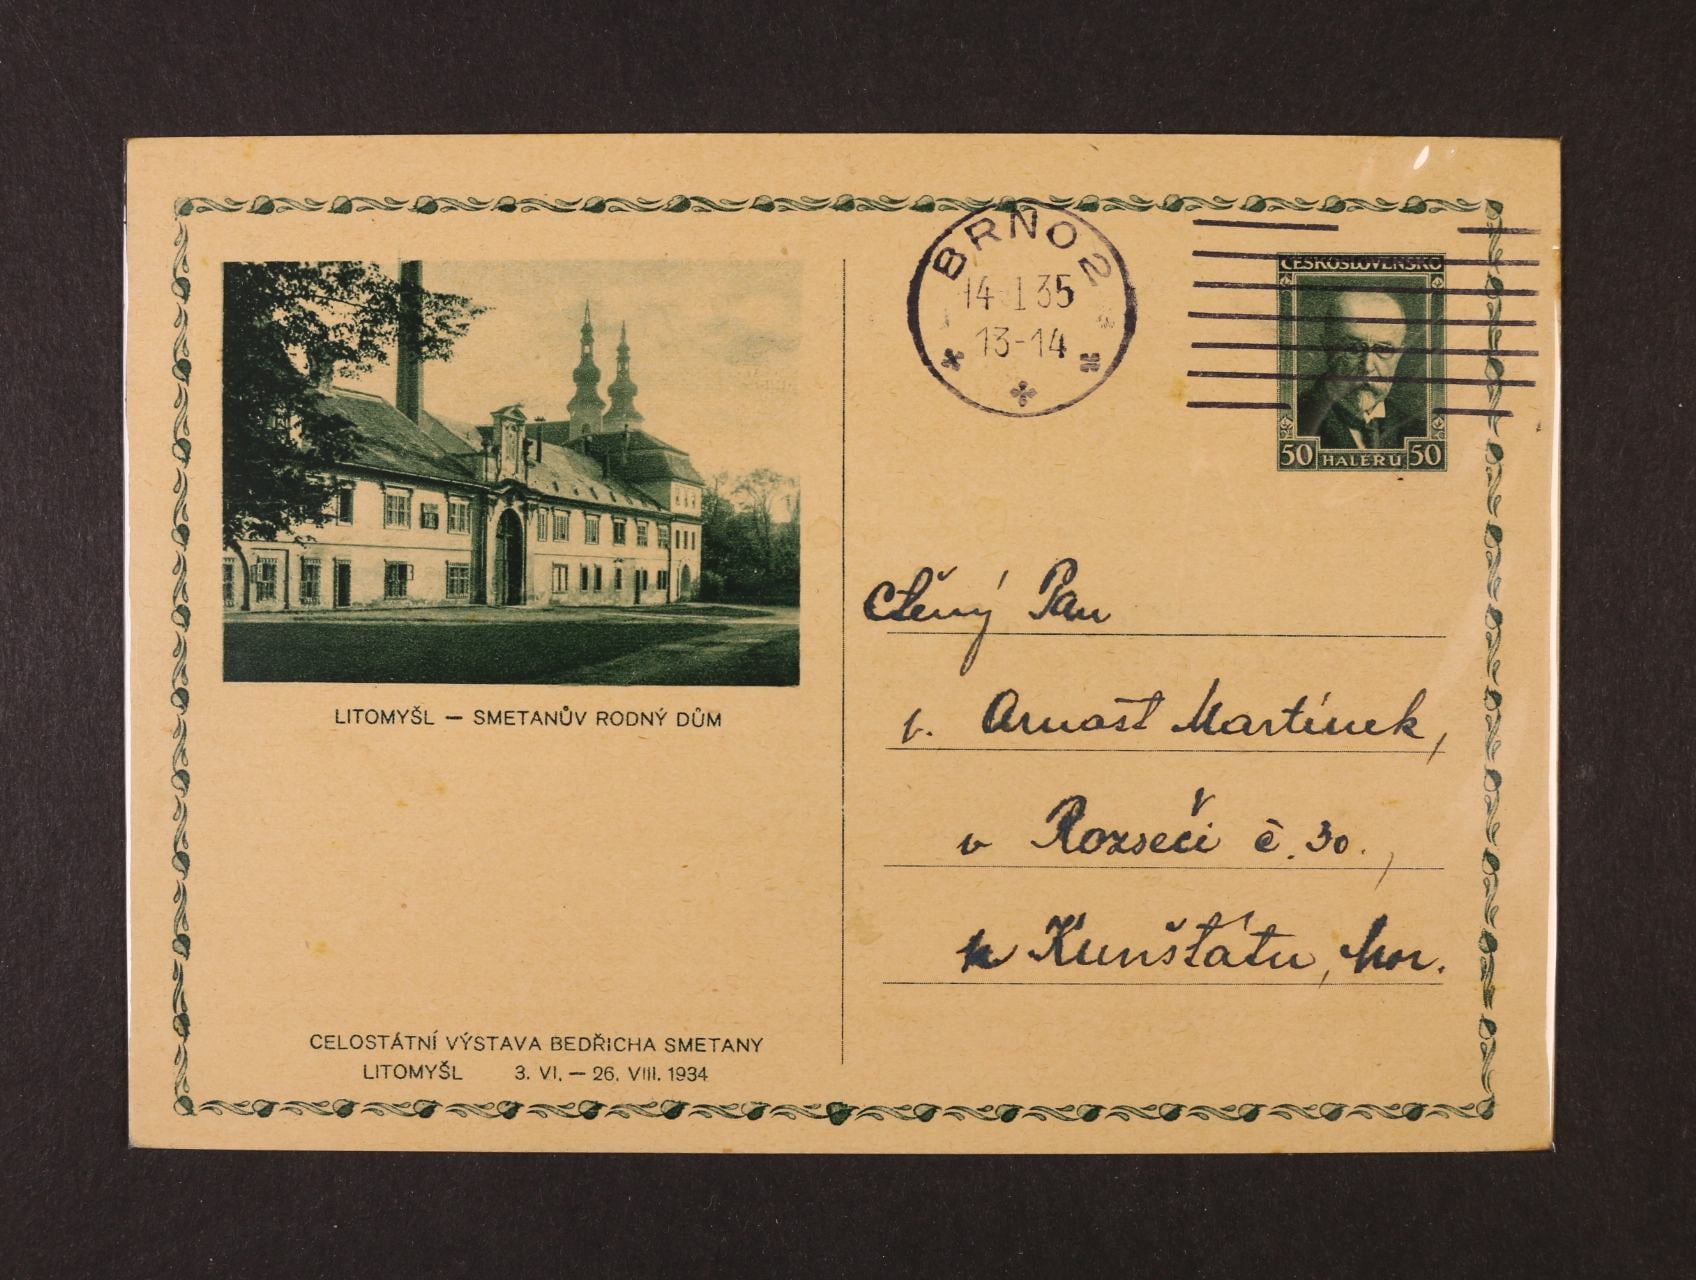 BRNO 2
14 I 35
13-14
ČESKOSLOVENSKO
50 HALÉŘŮ 50
LITOMYŠL — SMETANŮV RODNÝ DŮM
CELOSTÁTNÍ VÝSTAVA BEDŘICHA SMETANY
LITOMYŠL 3. VI. — 26. VIII. 1934
Ctěný Pan
p. Arnošt Martínek,
v Rozseči č. 30.,
u Kunštátu, Mor.